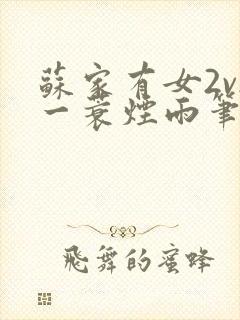 蘇家有女2v
一蓑煙雨筆
飛舞的蜜蜂